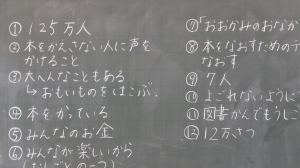 ① 125万人
② 本をかえさない人に声を
かけること
③ 大へんなこともある
↳おもいものをはこぶ。
④ 本をかっている
⑤ みんなのお金
⑥ みんなが楽しいから
⑦「おおかみのおなか
⑧ 本をなおすための
なおす
⑨ 7人
⑩ よごれないように
⑪ 図書かんでもうしこ
⑫ 12万さつ